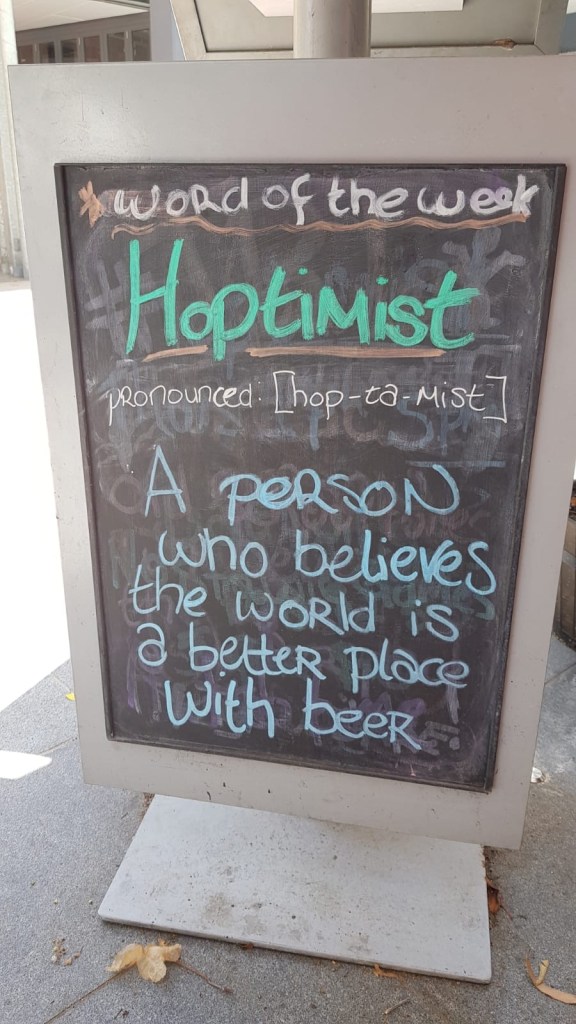 * word of the week
Hoptimist
pronounced: [hop-ta-mist]
A person
who believes
the world is
a better place
with beer